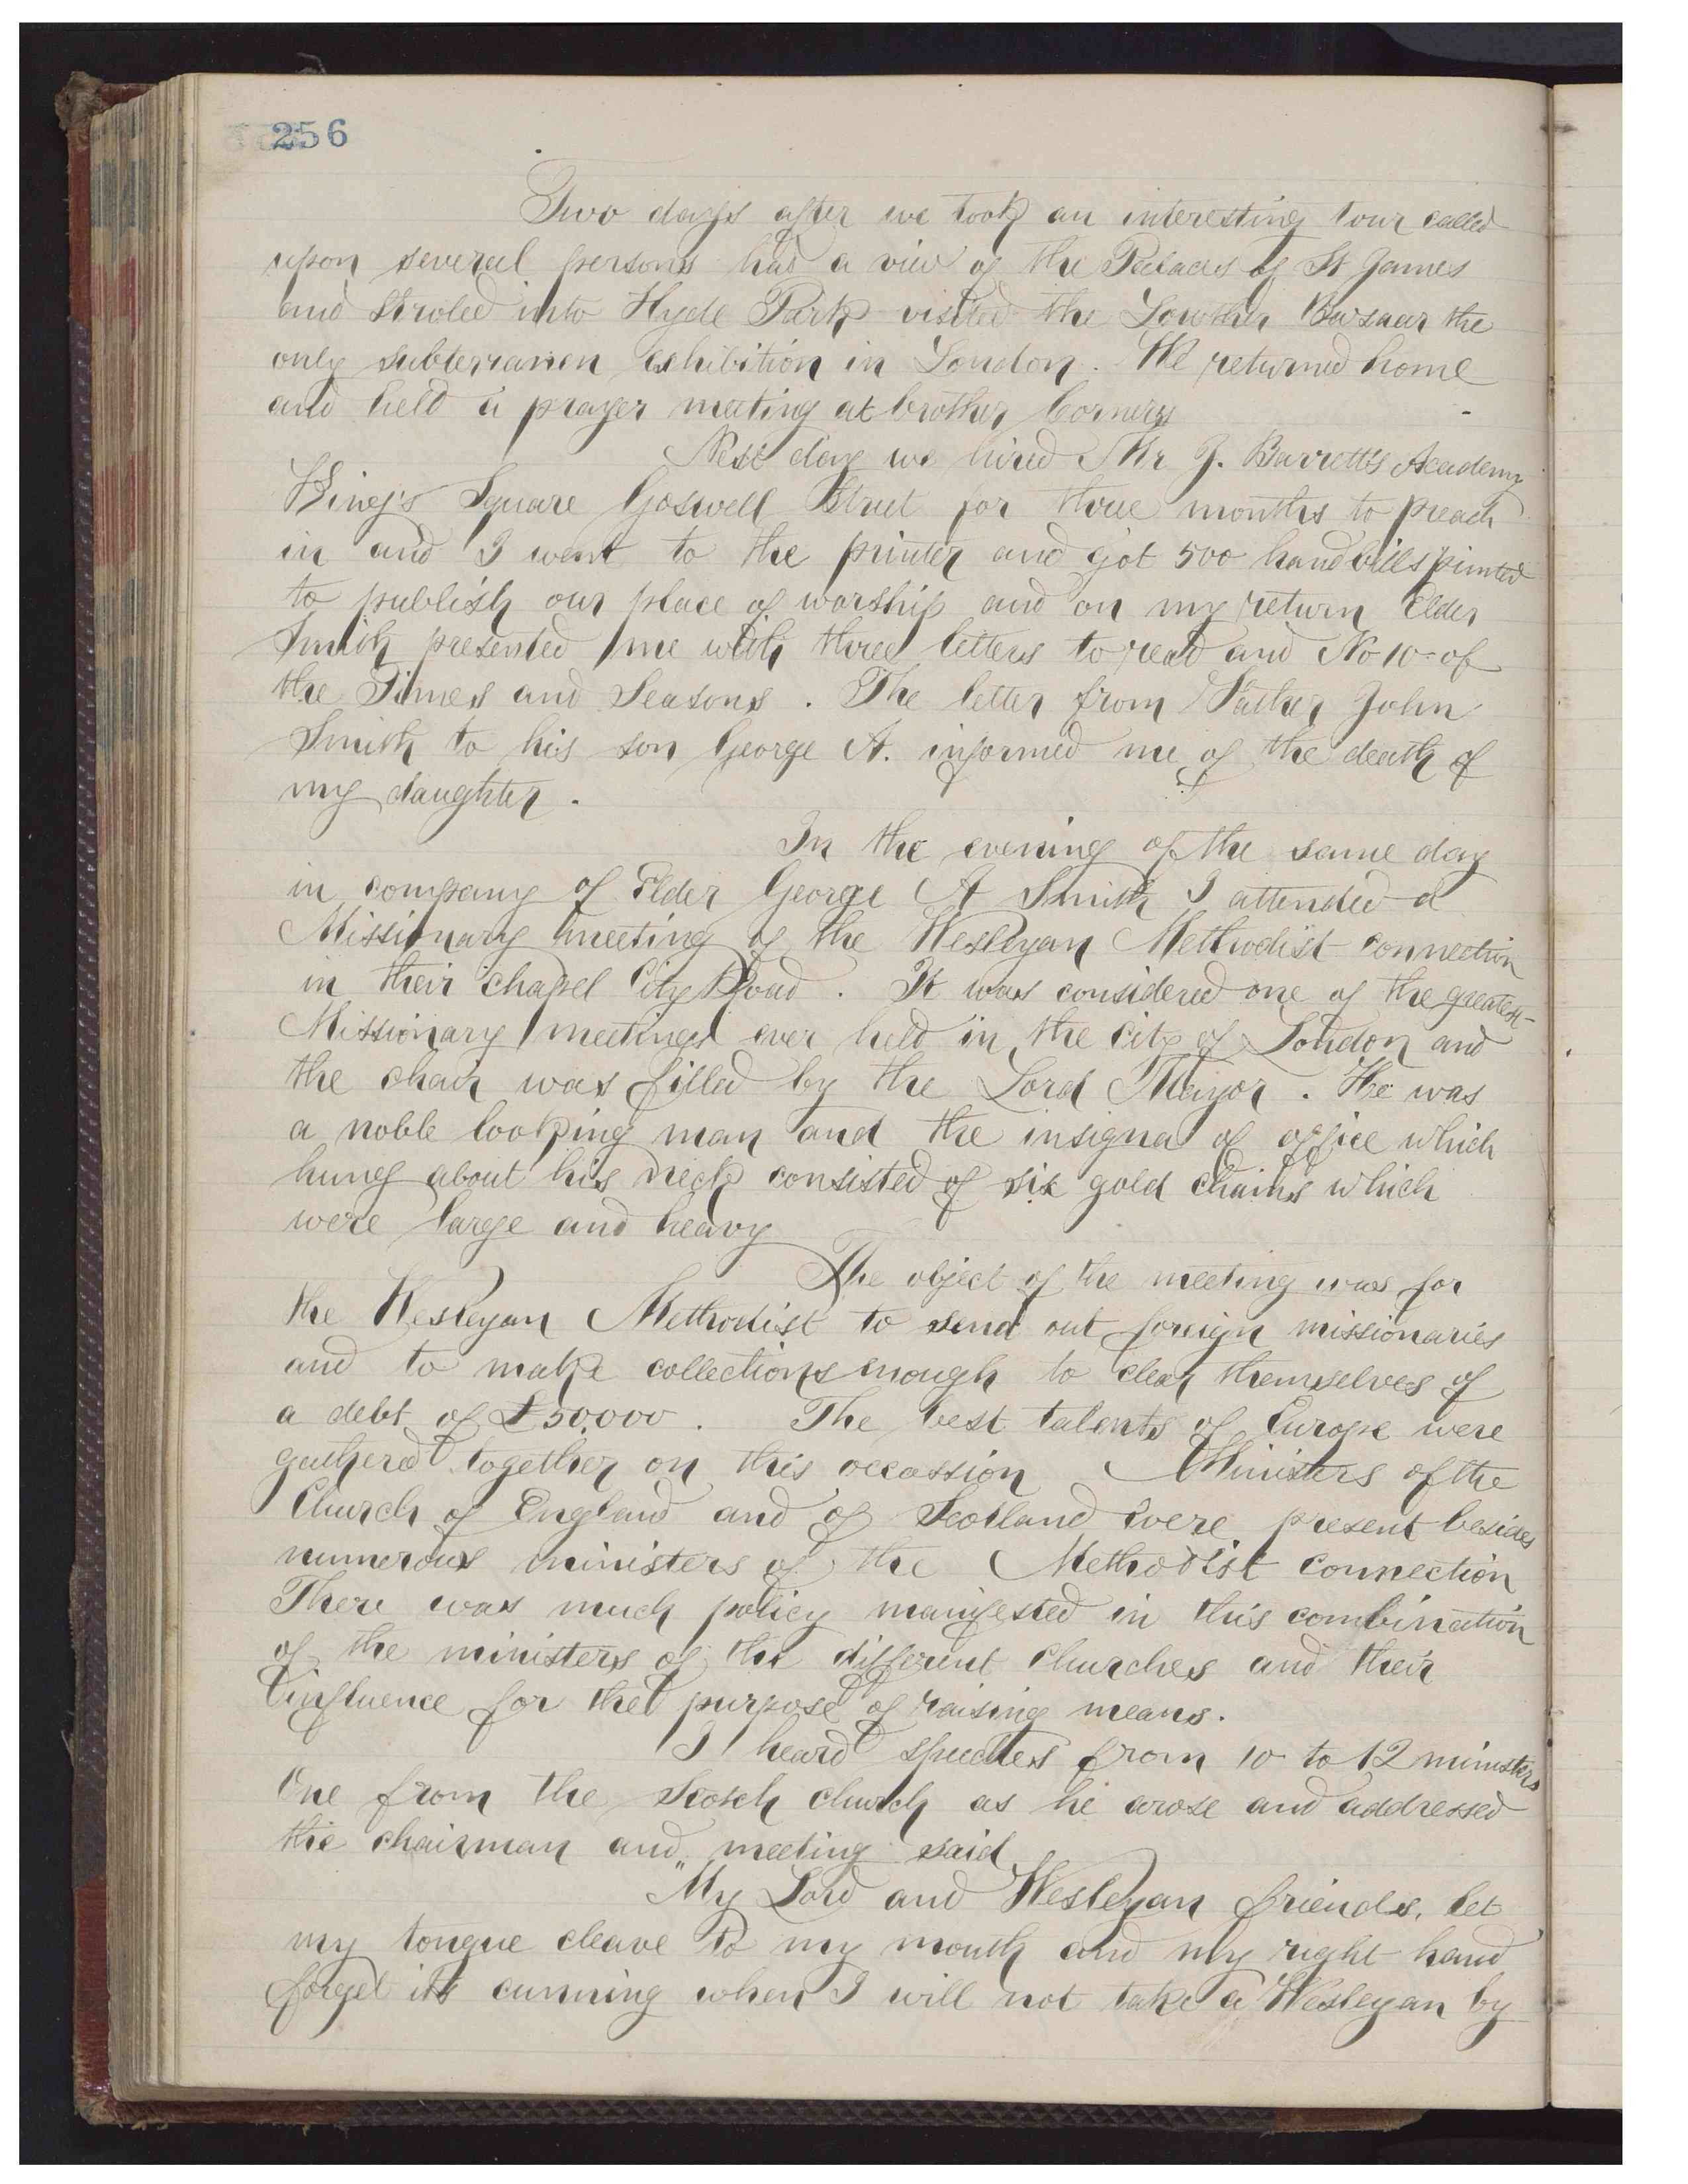 256
Two days after we took an interesting tour called
upon several persons had a view of the Palaces of St James
and stroled into Hyde Park visited the Lowther Bazaar the
only subterranen exhibition in London. We returned home
and held a prayer meeting at brother Corners
Next day we hired Mr J. Barrett's Academy
King's Square Goswell Street for three months to preach
in and I went to the printer and got 500 handbills printed
to publish our place of worship and on my return Elder
Smith presented me with three letters to read and No 10 of
the Times and Seasons. The letter from Father John
Smith to his son George A. informed me of the death of
my daughter.
In the evening of the same day
in company of Elder George A Smith I attended a
Missionary meeting of the Wesleyan Methodist connection
in their chapel City Road. It was considered one of the greatest
Missionary meetings ever held in the City of London and
the chair was filled by the Lord Mayor. He was
a noble looking man and the insigna of office which
hung about his neck consisted of six gold chains which
were large and heavy
The object of the meeting was for
the Wesleyan Methodist to send out foreign missionaries
and to make collections enough to clear themselves of
a debt of £50,000. The best talents of Europe were
gathered together on this occassion Ministers of the
Church of England and of Scotland were present besides
numerous ministers of the Methodist connection
There was much policy manifested in this combination
of the ministers of the different churches and their
influence for the purpose of raising means.
I heard speeches from 10 to 12 ministers
One from the Scotch church as he arose and addressed
the chairman and meeting said
"My Lord and Wesleyan friends, let
my tongue cleave to my mouth and my right hand
forget its cunning when I will not take a Wesleyan by